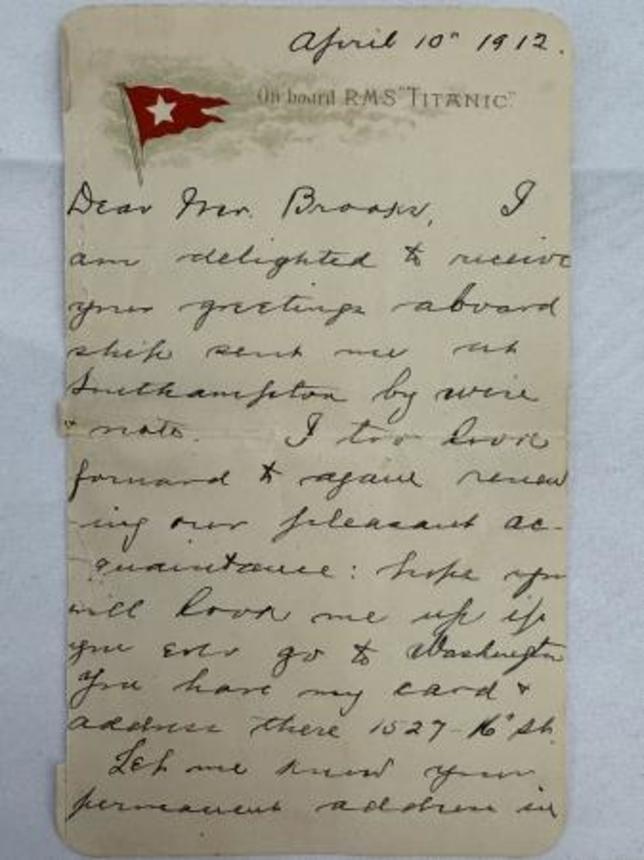 April 10" 1912.
On board R.M.S "TITANIC."
Dear Mr. Brooks, I
am delighted to receive
your greetings aboard
ship sent me at
Southampton by wire
& note. I too look
forward to again renew
-ing our pleasant ac-
quaintance: hope you
will look me up if
you ever go to Washington
You have my card &
address there 1527-16" St.
Let me know your
permanent address in